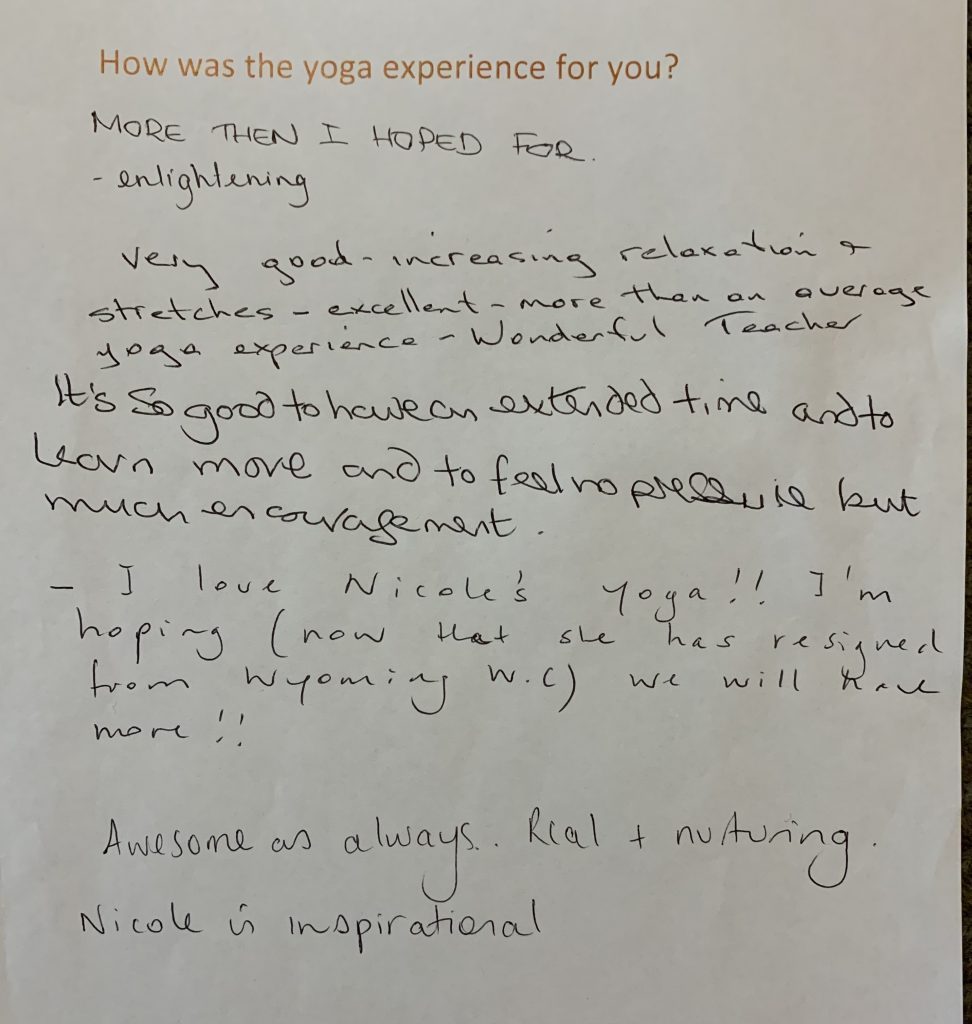 How was the yoga experience for you?
MORE THEN I HOPED FOR.
- enlightening
very good - increasing relaxation &
stretches - excellent - more than an average
yoga experience - Wonderful Teacher
It's so good to have an extended time and to
learn more and to feel no pressure but
much encouragement.
- I love Nicole's yoga!! I'm
hoping (now that she has resigned
from Wyoming W.C) we will have
more!!
Awesome as always.. Real + nurturing.
Nicole is inspirational